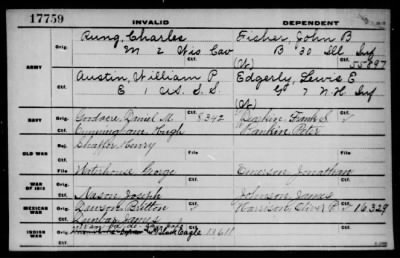 17759
INVALID DEPENDENT
ARMY
Orig. Rung, Charles Fisher, John B
M 2 Wis Cav B '30 Ill Inf
Ctf. (W) 55897
Orig. Austin, William P. Edgerly, Lewis E
E 1 U.S. S.S. G 7 N.H Inf
Ctf. (W)
NAVY
Orig. Goodacre, Daniel M. 8342 Frank S
Ctf. Cunningham, Hugh Rankin Peter
OLD WAR
Rej. Shaffer Henry
File Waterhouse George File Emerson Jonathan
WAR OF 1812
Orig.
Ctf. Nason Joseph Johnson James
MEXICAN WAR
Orig. Benson Britton Harrison, Oliver 16329
Ctf. Dunbar James Ctf.
INDIAN WAR
Orig. Eagle 13611
Ctf. Ctf.